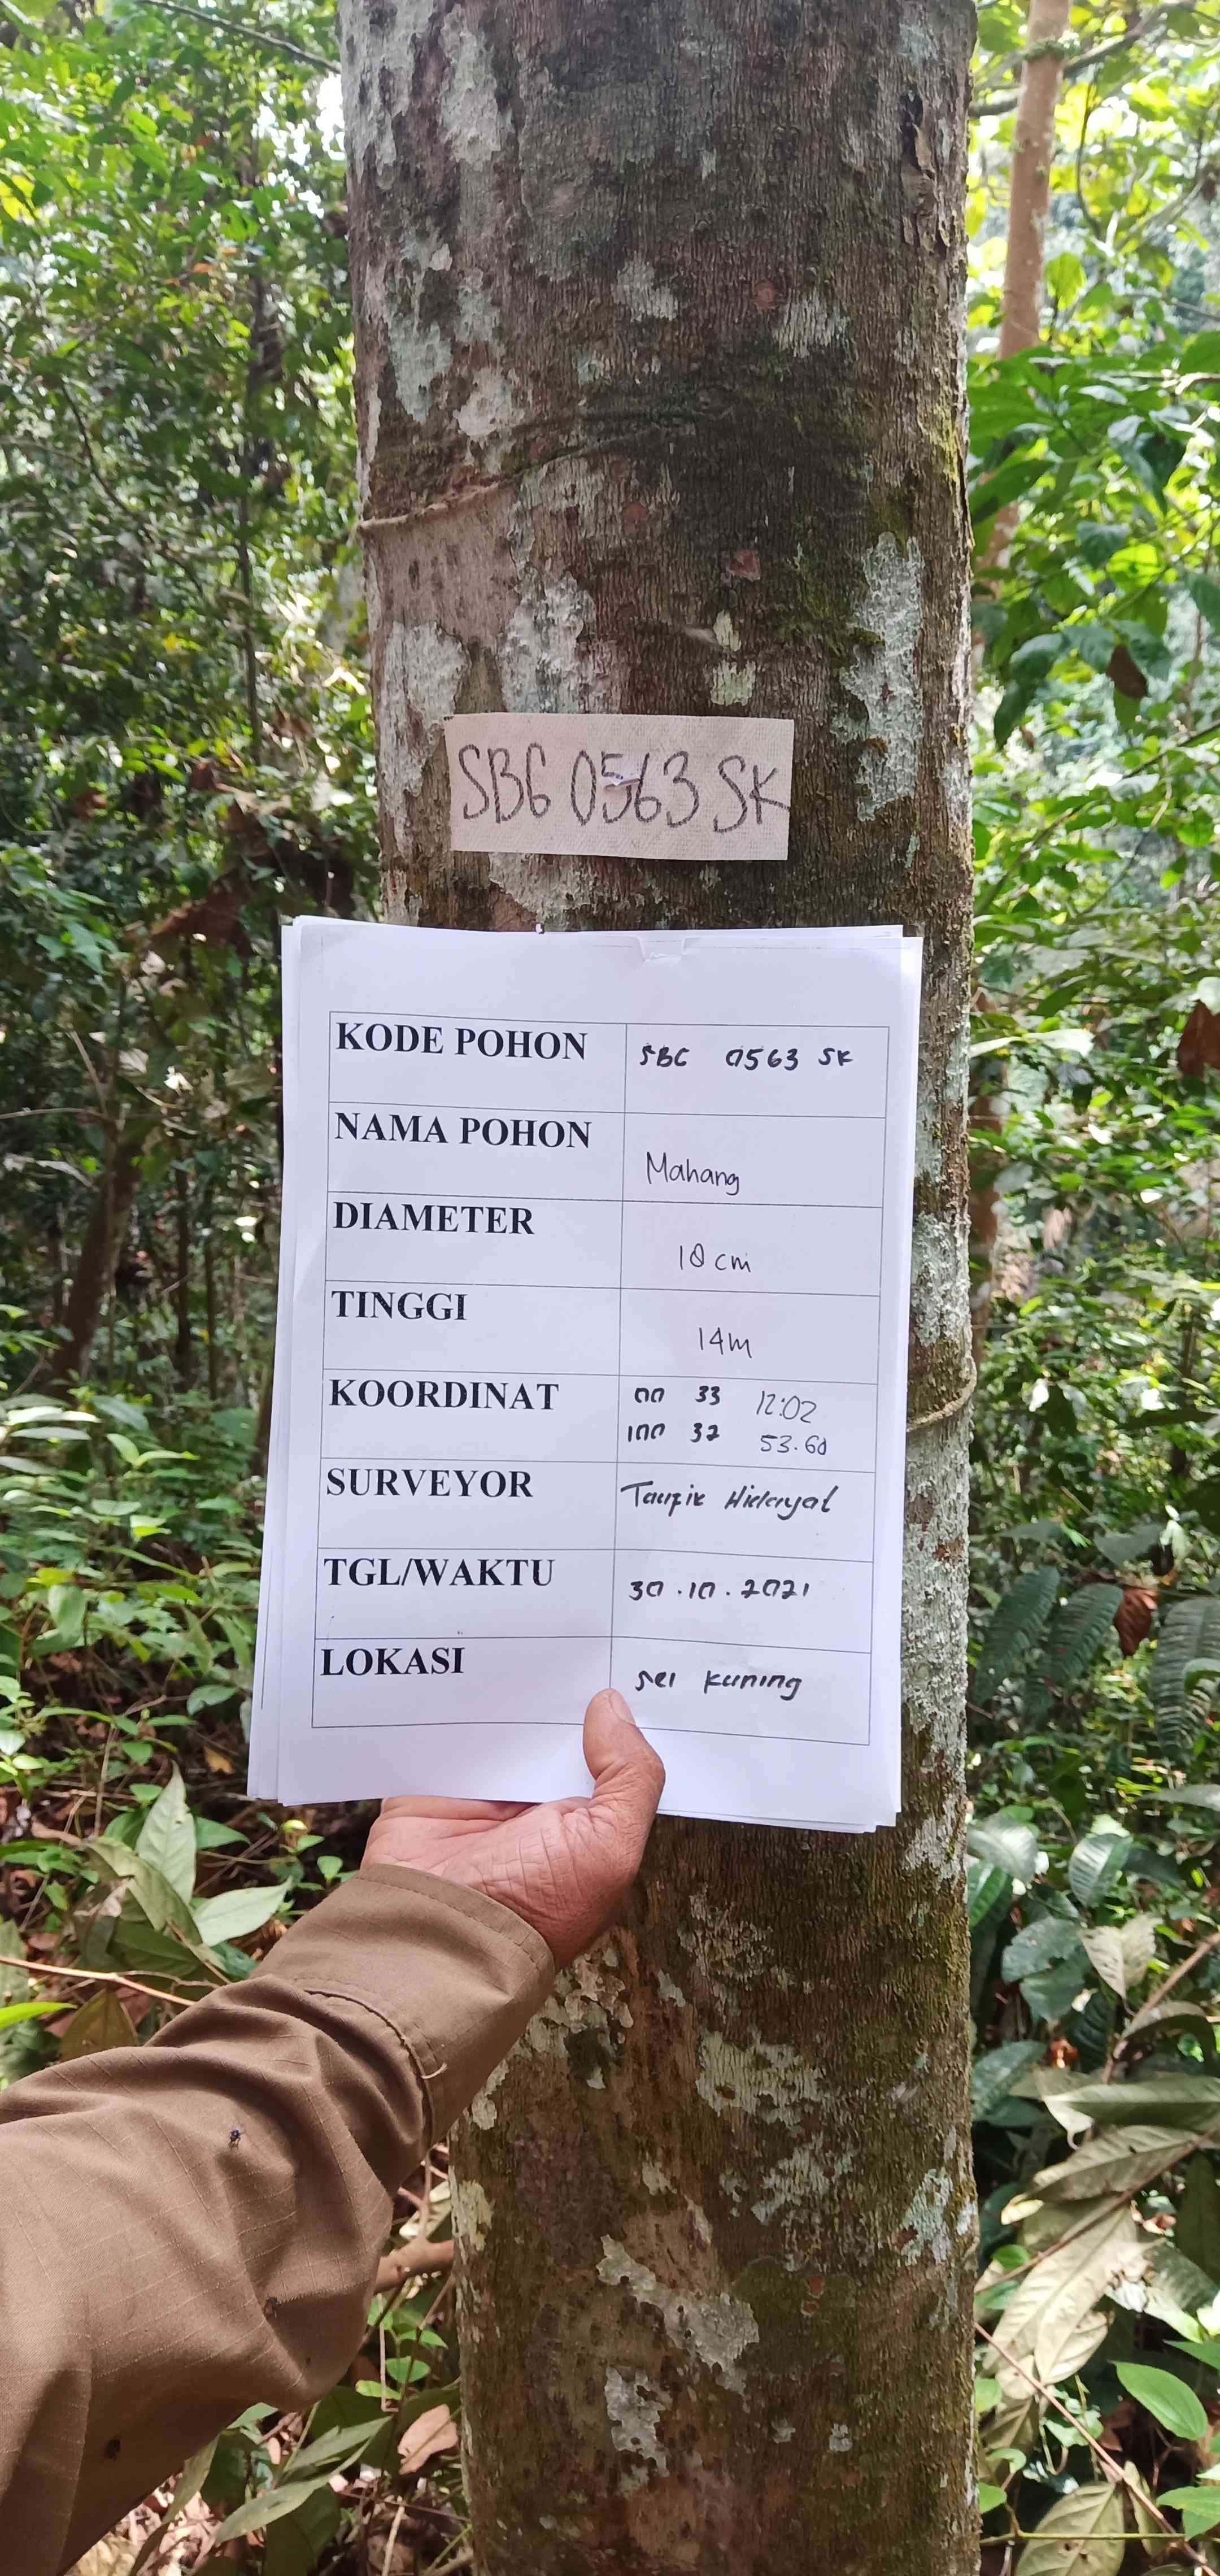 SBG 0563 SK
KODE POHON SBG 0563 SK
NAMA POHON Mahang
DIAMETER 18 cm
TINGGI 14m
KOORDINAT 00 33 12:02
100 32 53.60
SURVEYOR Taupik Hidayat
TGL/WAKTU 30.10.2021
LOKASI Sei Kuning